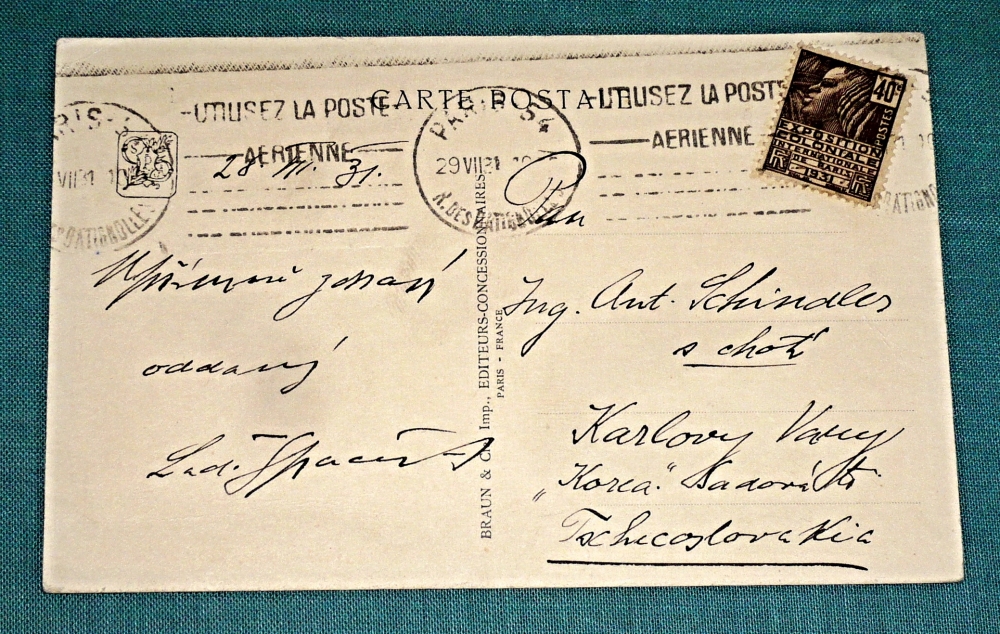 CARTE POSTALE
UTILISEZ LA POSTE
AERIENNE
PARIS 54
29 VII 31
R. DES BATIGNOLLES
UTILISEZ LA POSTE
AERIENNE
40c
POSTES
EXPOSITION
COLONIALE
INTERNATIONALE
DE PARIS
1931
VII 31
BATIGNOLLES
28. VII. 31.
Upřímný zdraví
oddaný
Lad.
BRAUN & Cie Imp., EDITEURS-CONCESSIONNAIRES
PARIS - FRANCE
Pan
Ing. Ant. Schindler
s chotí
Karlovy Vary
„Korea" Sadová tř.
Tschecoslovakia